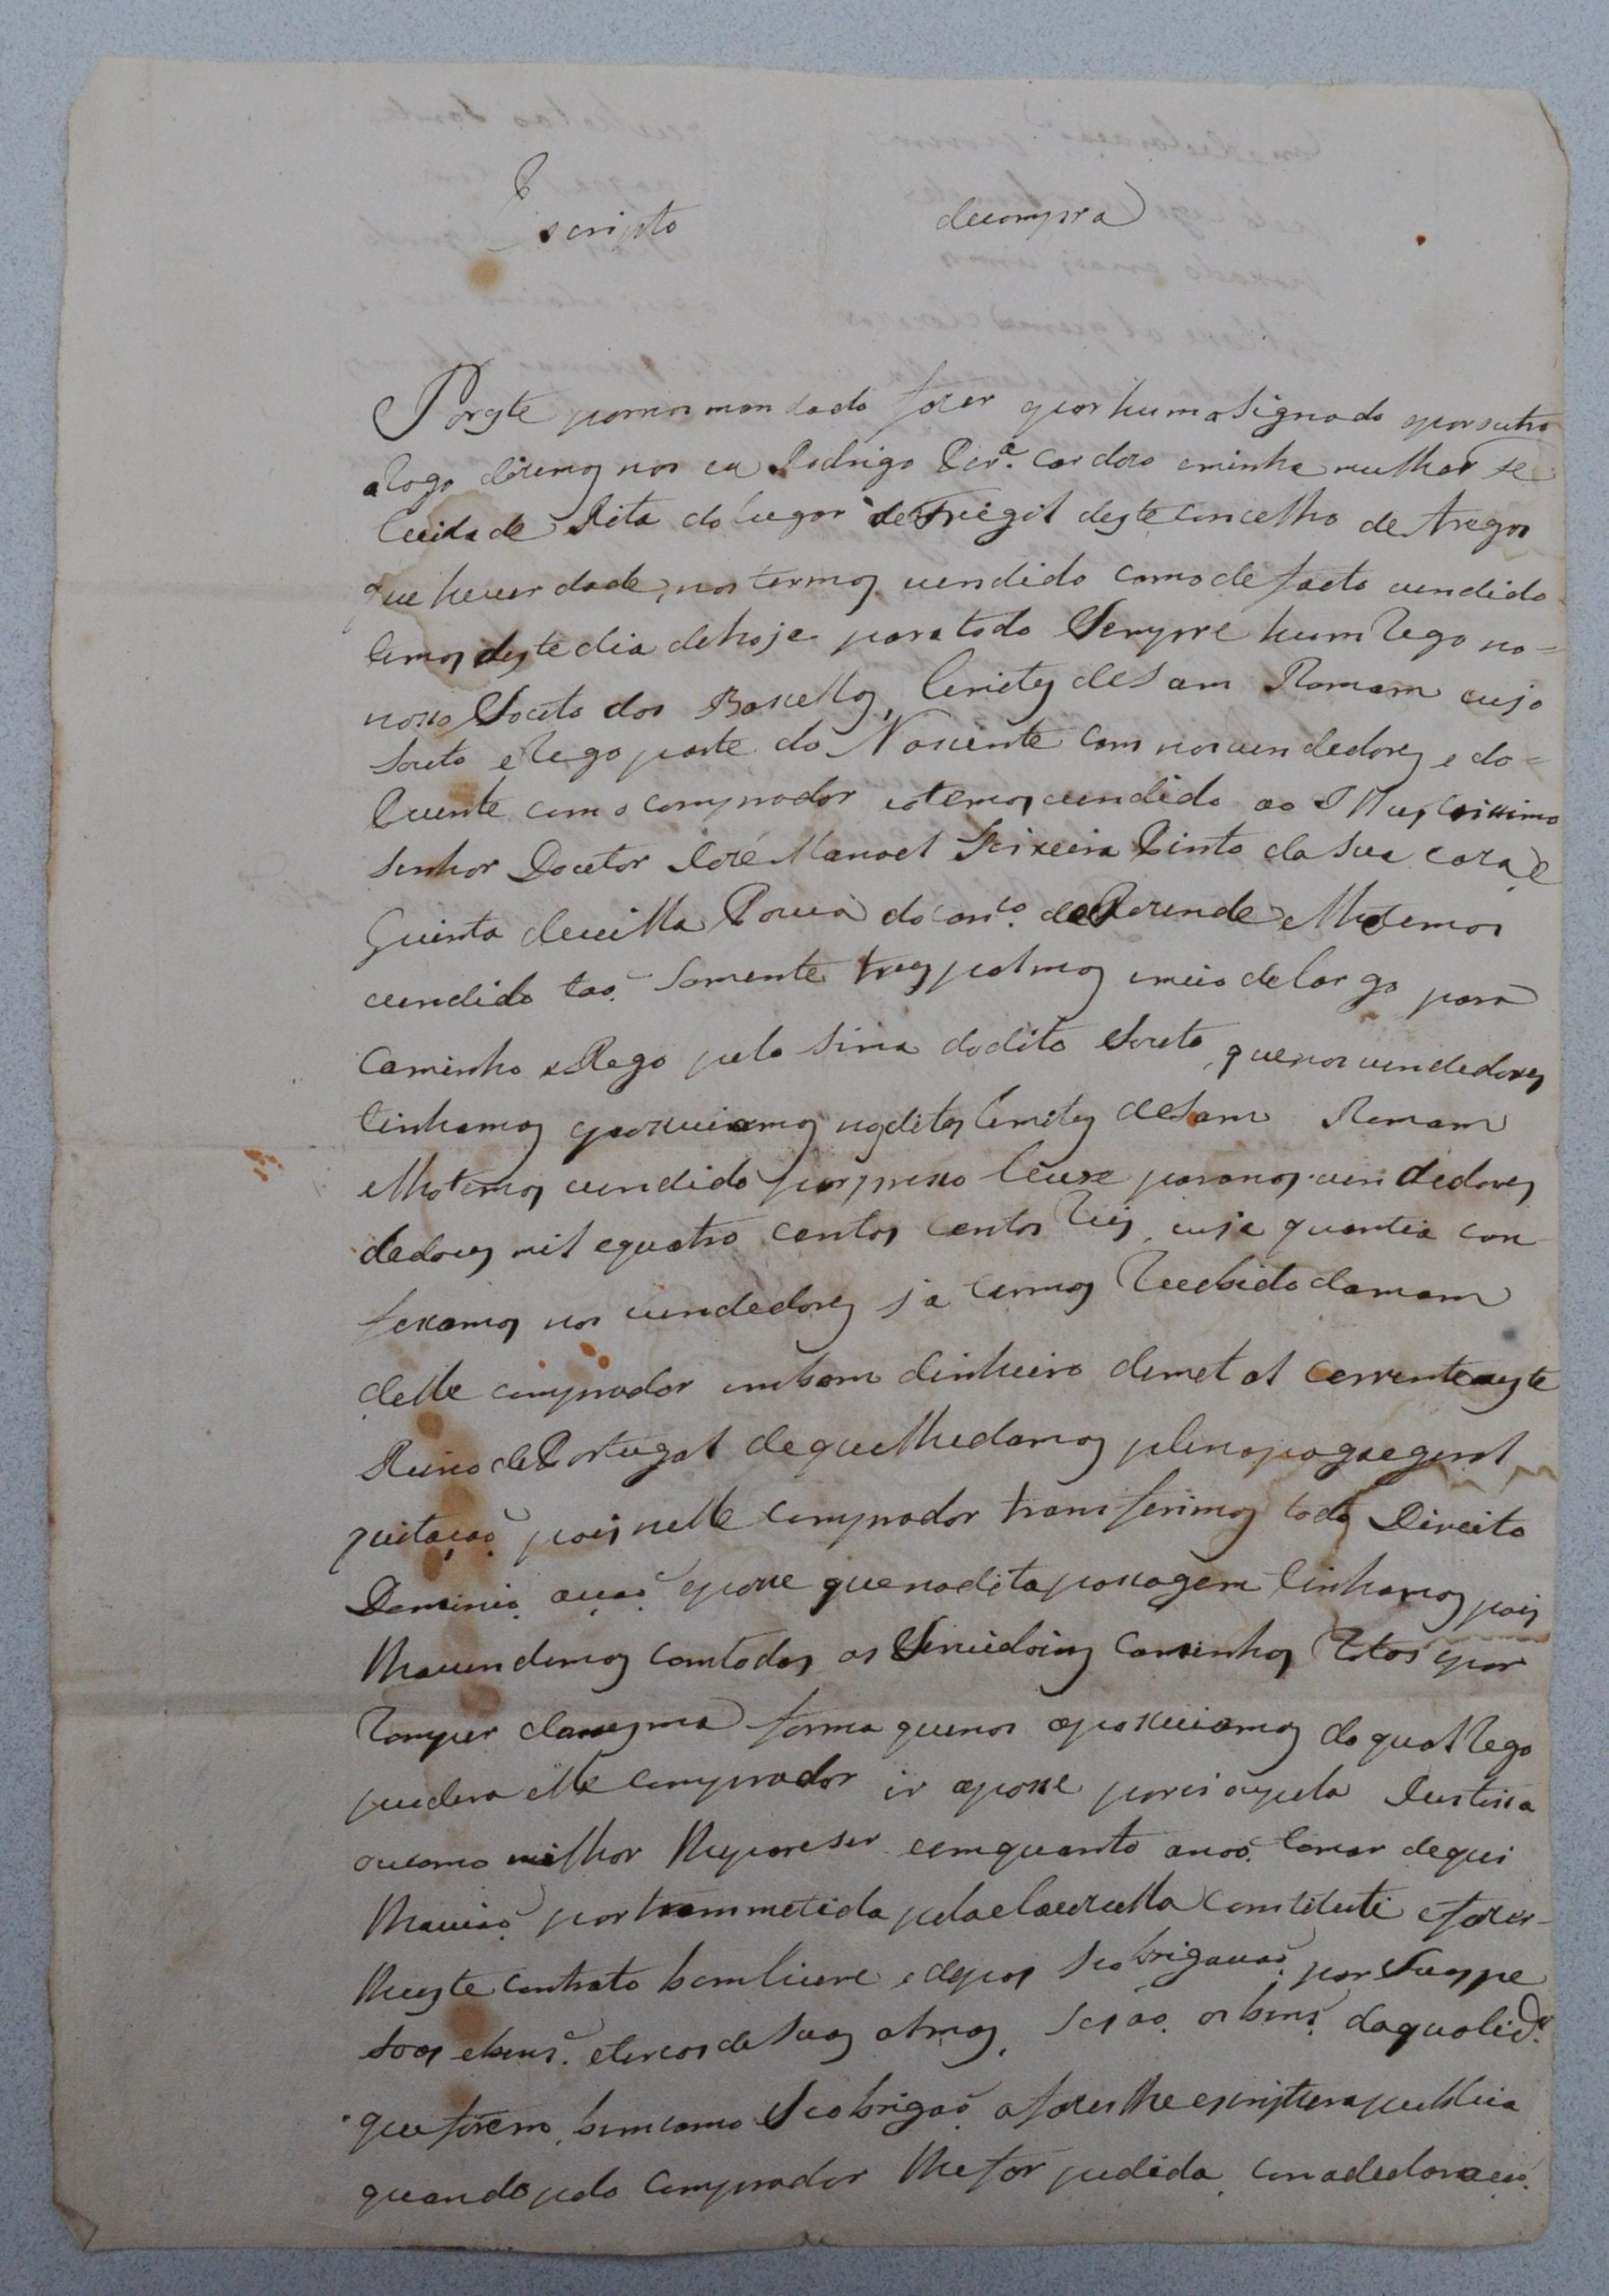 Escripto decompra
Porste pornos mandado fazer eporhum asignado eporoutro
arogo dizemos nos eu Rodrigo Per.ª Cardozo eminha mulher Fe
licidade Rita do lugar de Friegil deste Concelho de Aregos
que heverdade nos termos vendido como de facto vendido
temos deste dia dehoje para todo Sempre hum Rego no=
nosso Souto dos Bassellos, Lemites deSam Romam cujo
Souto e Rego parte do Nascente com nosvendedores e do=
Puente com o comprador eotemos vendido ao Illustrissimo
Senhor Doutor José Manoel Teixeira Pinto da sua caza, e
Quinta devilla Pouca do con.co de Rezende elhotemos
vendido taõ Somente tres palmos emeio delargo para
Caminho eRego pelo sima dodito Souto, quenos vendedores
tinhamos epossuiamos nosditos lemites deSam Romam
elhotemos vendido porpreso livre paranos vendedores
dedores mil equatro centos centos reis, cuja quantia con
fessamos nos vendedores ja termos Recebido damam
delle comprador embom dinheiro demetal corrente neste
Reino de Portugal dequelhedamos plenapagaegeral
quitaçaõ poisnelle comprador transferimos todo Direito
Dominio auçaõ eposse quenadita passagem tinhamos pois
lhavendemos comtodas as Servidois caminhos Rotos epor
Romper damesma forma quenos apossuiamos doqual Rego
pudera elle comprador ir aposse porsi oupela Justissa
oucomo milhor lhepareser eemquanto anaõ tomar dequi
lhaviaõ portrammetida pelaclauzulla constituti efazer-
lheeste contrato bomlivre edepas seobrigavaõ, por Suas pe
soas ebens. etercosdeSuas almas, Sejaõ. osbens daqualid.e
queforem, bemcomo Seobrigaõ. afazerlhe escriptura publica
quandopelo comprador lhefor pedida, comadeclaraçaõ.